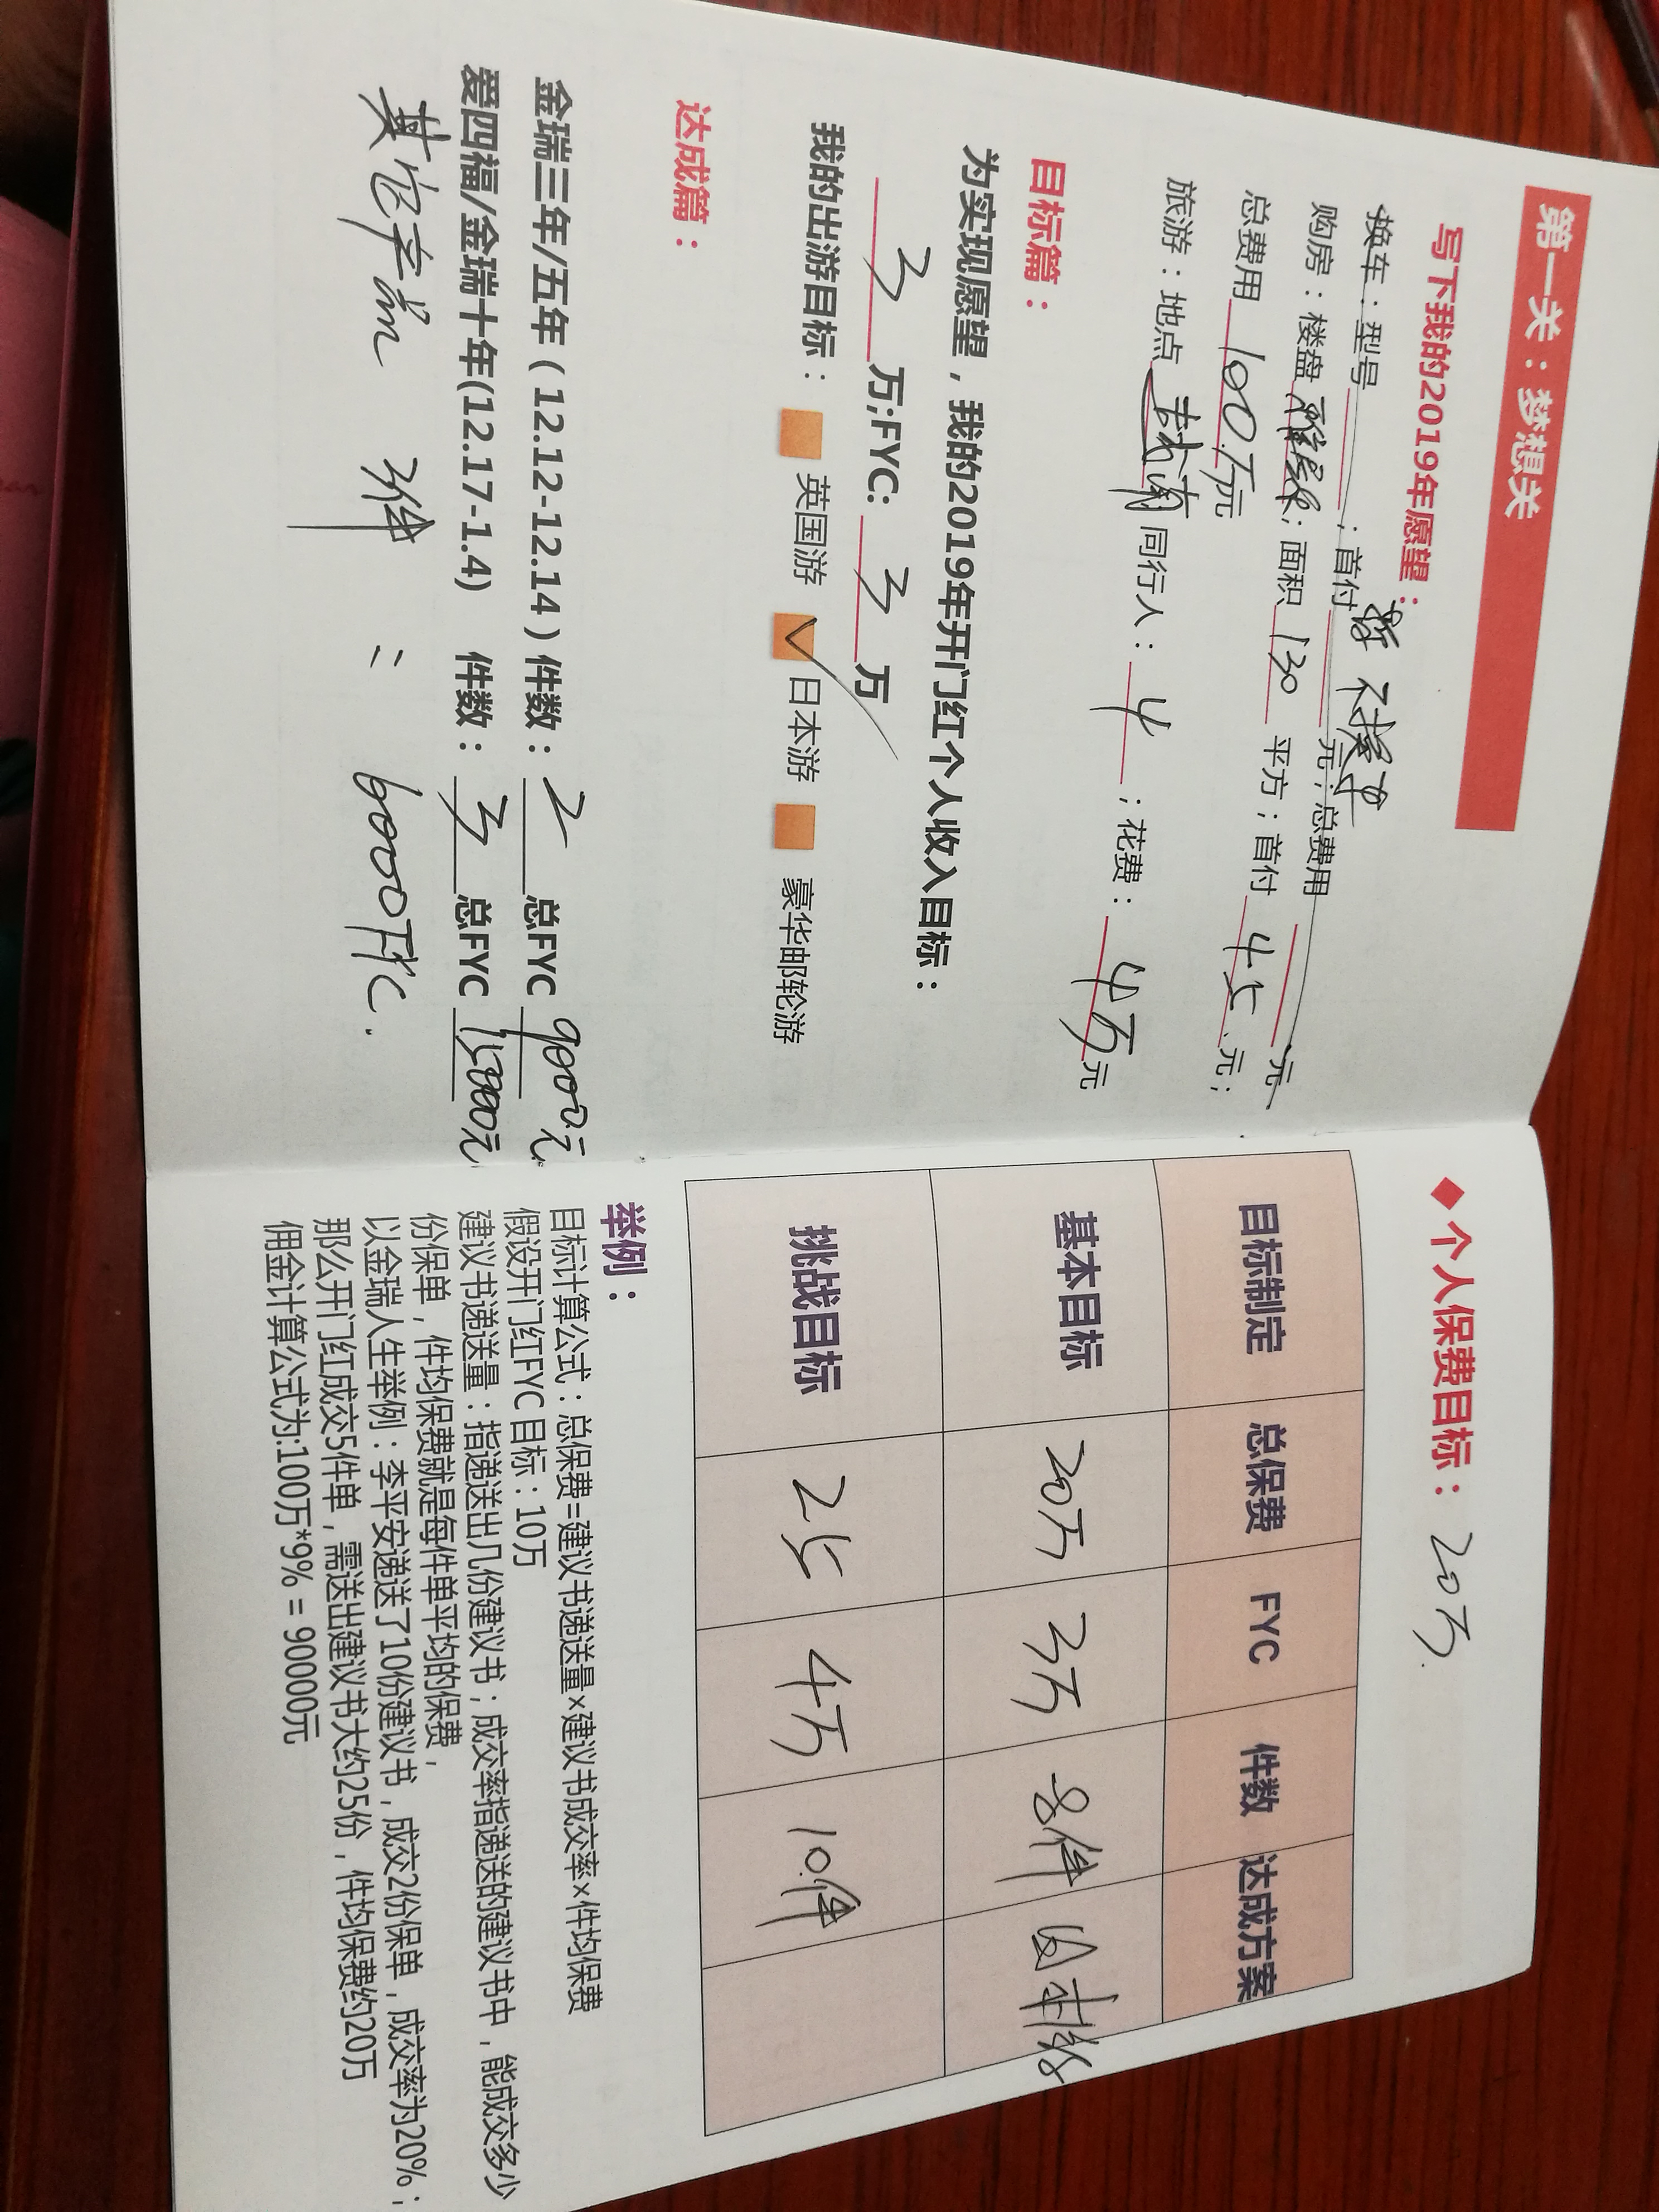 第一关：梦想关
写下我的2019年愿望：
暂不换车
换车：型号；首付元；总费用元
购房：楼盘；面积130平方；首付45元；
总费用100万元
旅游：地点越南同行人：4；花费：4万元
目标篇：
为实现愿望，我的2019年开门红个人收入目标：
3万;FYC:3万
我的出游目标：英国游 日本游 豪华邮轮游
达成篇：
金瑞三年/五年（12.12-12.14）件数：2总FYC9000元
爱四福/金瑞十年(12.17-1.4) 件数：3总FYC15000元
其它 3件 = 6000FYC.
◆个人保费目标：20万.
目标制定 总保费 FYC 件数 达成方案
基本目标 20万 3万 8件
挑战目标 25 4万 10件
举例：
目标计算公式：总保费=建议书递送量×建议书成交率×件均保费
假设开门红FYC目标：10万
建议书递送量：指递送出几份建议书；成交率指递送的建议书中，能成交多少
份保单，件均保费就是每件单平均的保费，
以金瑞人生举例：李平安递送了10份建议书，成交2份保单，成交率为20%；
那么开门红成交5件单，需送出建议书大约25份，件均保费约20万
佣金计算公式为:100万*9% = 90000元